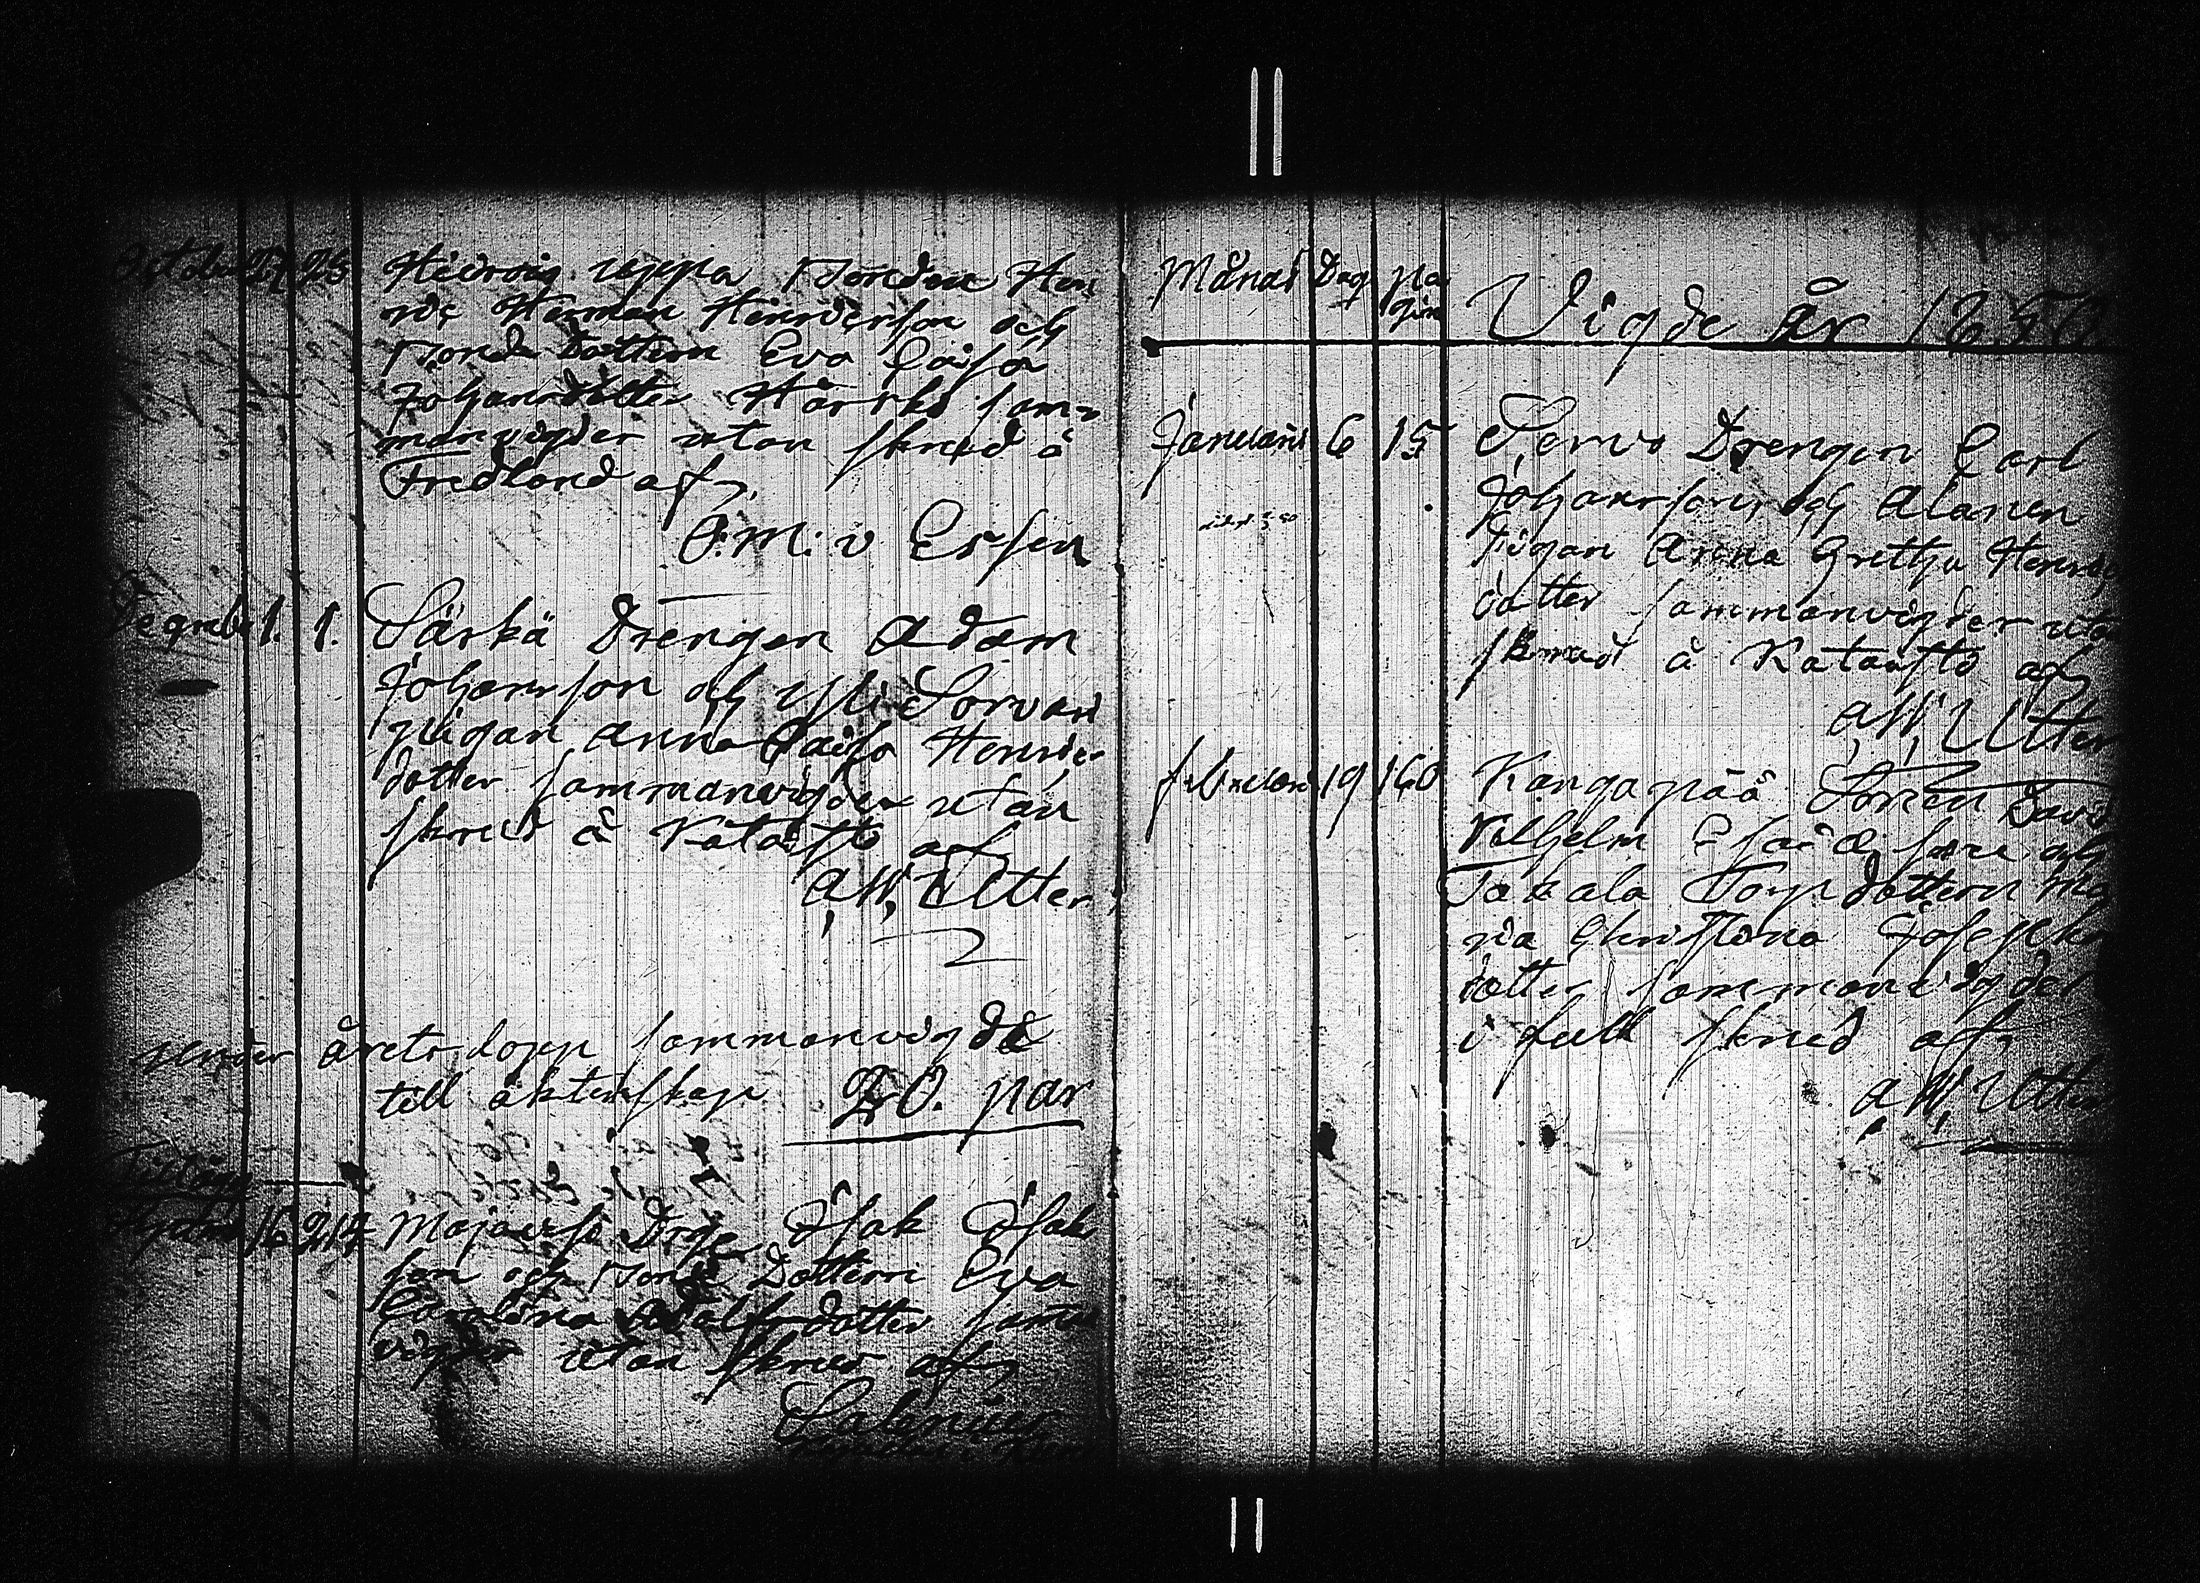 October 27 25 Heidroig uppa Bonden Hen
ric Herman Henricsson och
Bonde Dottern Eva Caisa
Johansdotter Härski sam-
manvigder utan skrud å
Fredland af
O: M: v Essen
December 1. 1. Särkä Drengen Adam
Johansson och Yli Sorvari
pigan Anna Caisa Henrics
dotter sammanvigder utan
skrud å Katajisto af
A, W, Utter
under årets lopp sammanvigde
till äktenskap 20. par
16 217 Majaersi Drgn Isak Isak
son och Bonde Dottern Eva
Carolina Adolfsdotter samman
vigder utan skrud af
Salenius
Månad Dag pa
gin
Vigde År 1850
Januari 6 15 Servo Drengen Carl
Johansson och Alanen
Pigan Anna Gretha Henrics
dotter sammanvigder utan
skrud å Katajisto af
A, W, Utter
februari 19 160 Kangapää Sonen David
Vilhelm Esaiæ son och
Takala Torp dottern Ma
ria Christina Josephs
dotter sammanvigder
i full skrud af
A, W, Utter